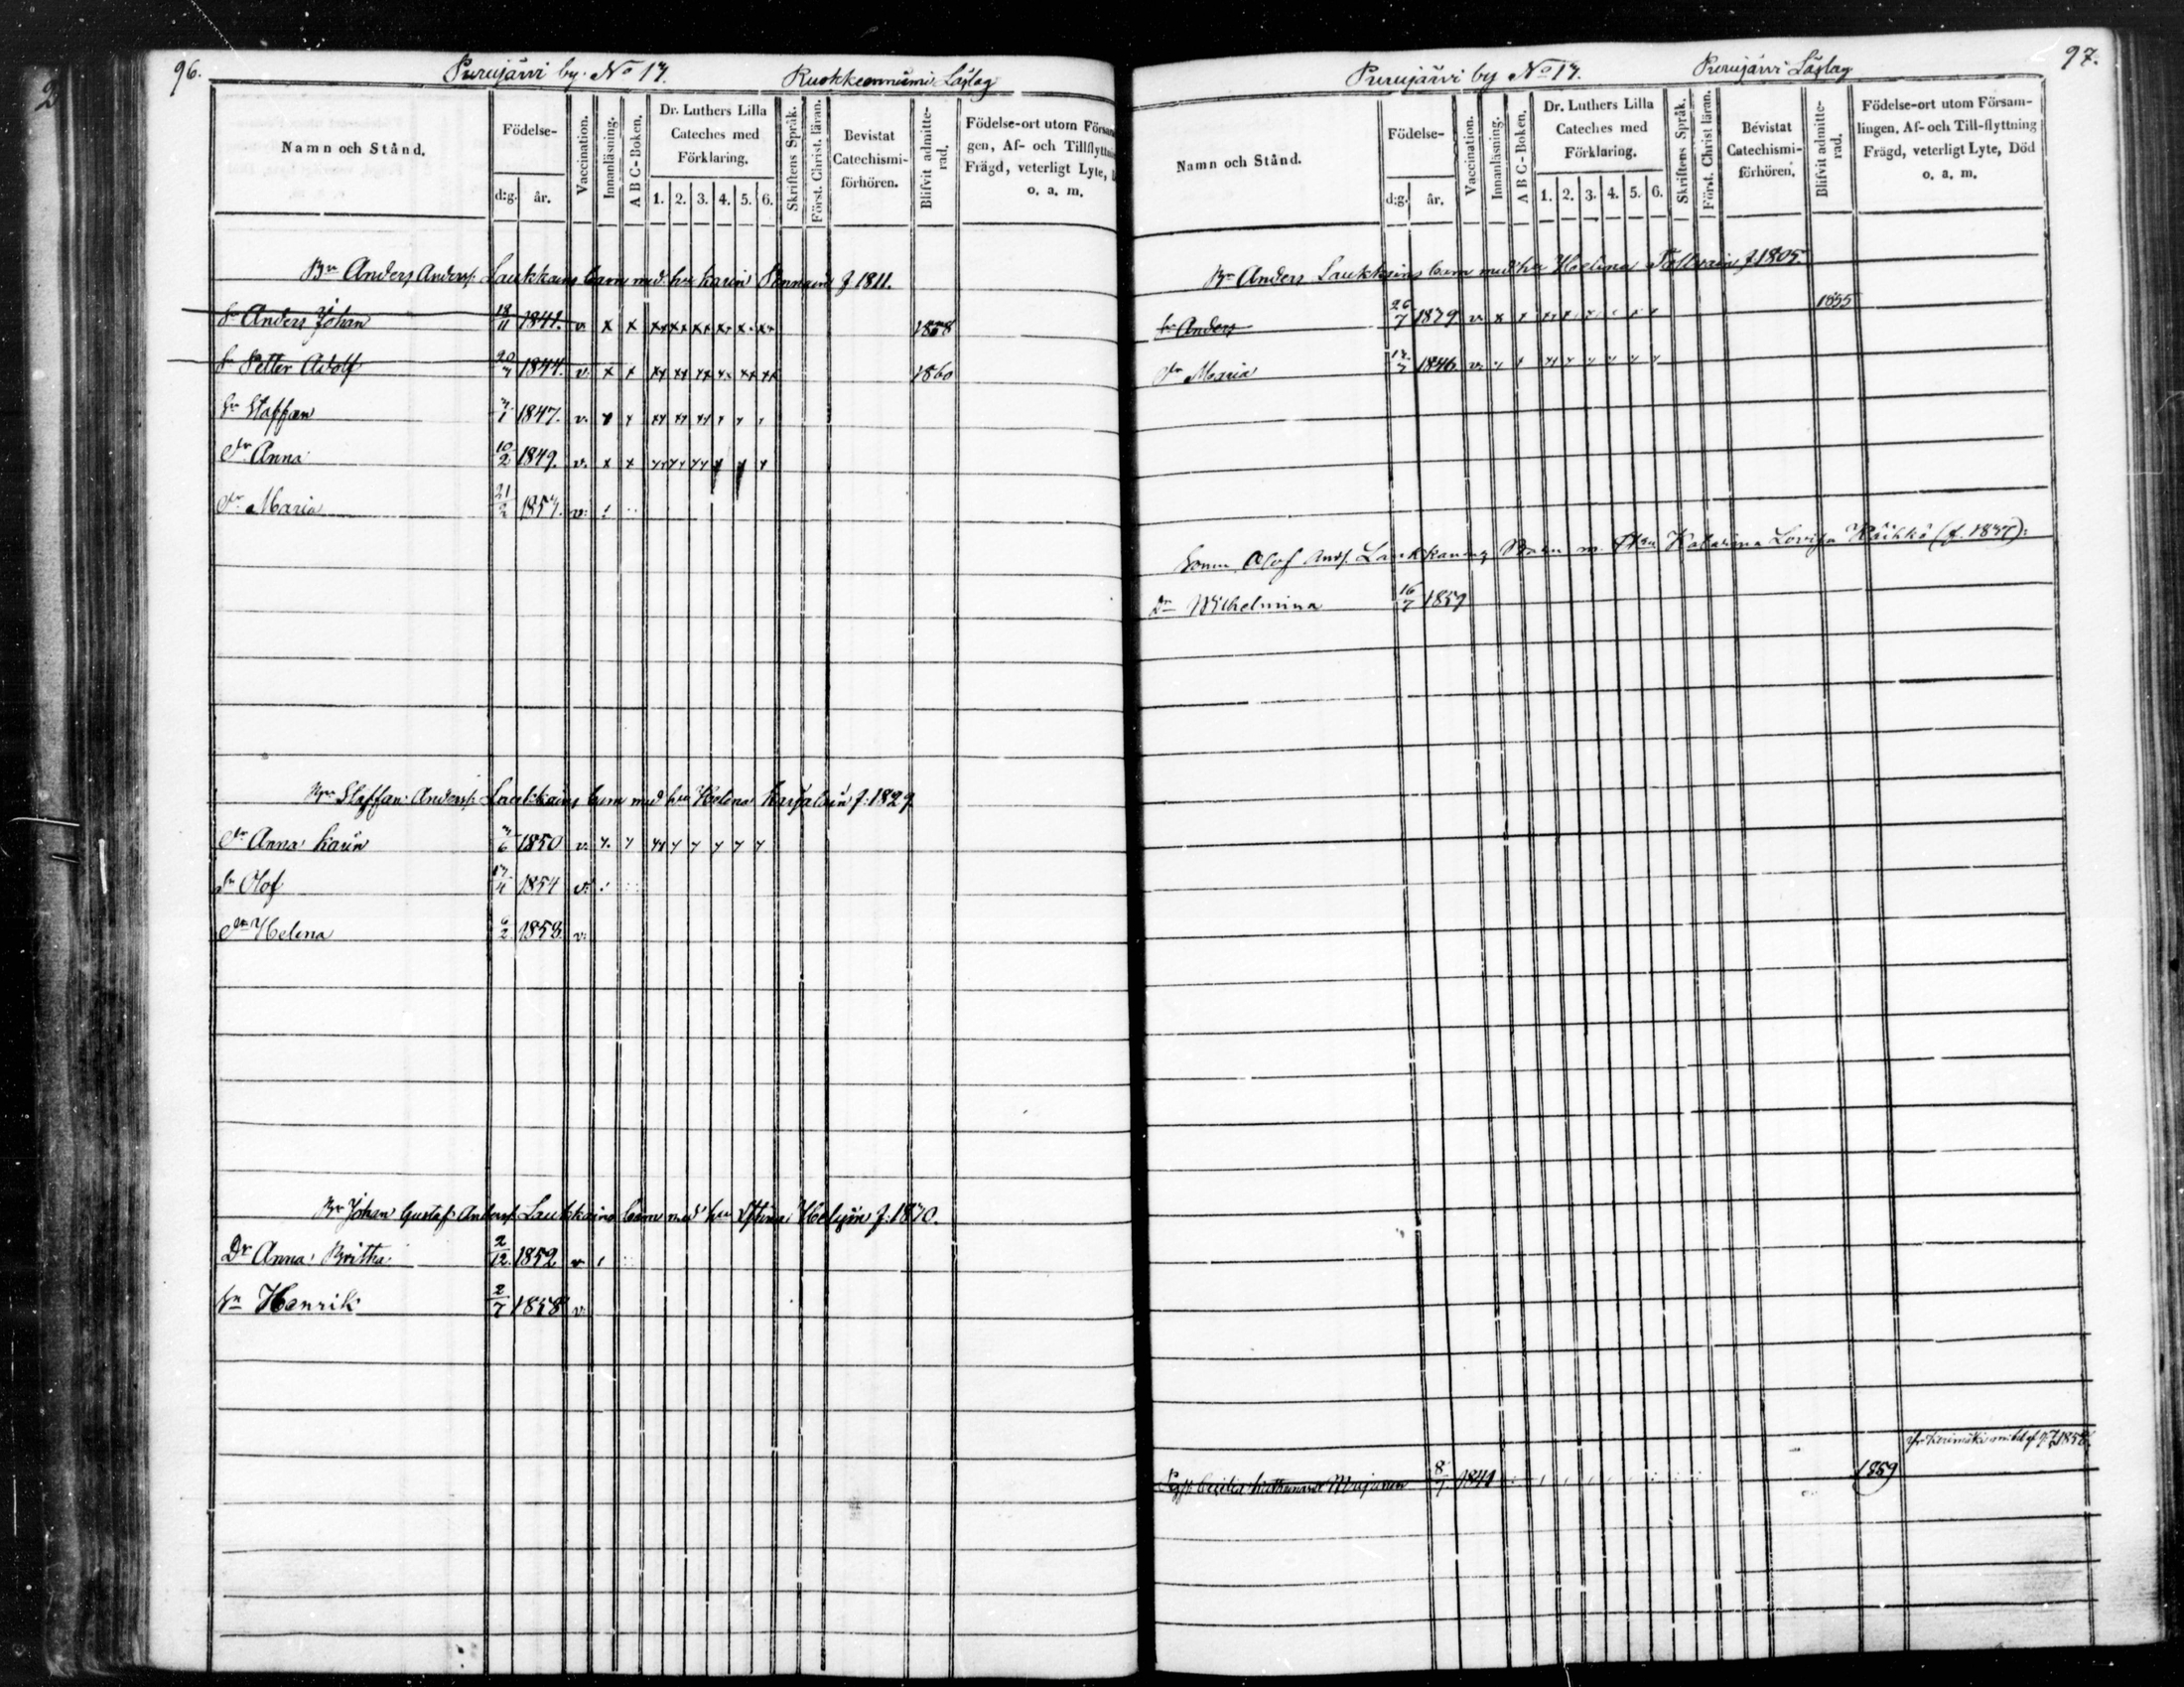 96.
Purujärvi by. No 17. Läslag
Namn och Stånd.
Födelse-
d:g. år.
Vaccination.
Innanläsning.
A B C-Boken.
Dr. Luthers Lilla
Cateches med
Förklaring.
1. 2. 3. 4. 5. 6.
Skriftens Språk.
Först. Christ. läran.
Bevistat
Catechismi-
förhören.
Blifvit admitte-
rad.
Födelse-ort utom Försam
gen, Af- och Tillflyttni
Frägd, veterligt Lyte,
o. a. m.
Bn Anders Anderss. Laukkains barn med hu Karin f 1811.
Sn Anders Johan 18/11 1841. v. x x xx xx xx x x x 1858
Sn Petter Adolf 20/7 1844. v. x x xx xx xx x xx xx 1860
Sn Staffan 1847. v.
Dr Anna 10/2 1849. v. x x
Dr Maria 21/2 1857. v.
Staffan Anderss. Laukkains barn med hu Helena f. 1829
Dr Anna Karin 1850 v.
Sn Olof 1854 v.
Dr Helena 6/2 1858. v.
Bn Johan Gustaf Anderss. Laukkains barn med hu Stina f. 1830.
Dr Anna Britha 2/12 1852 v
Sn Henrik 2/7 1858 v.
97.
Purujärvi by No 17. Purujärvi Läslag
Namn och Stånd.
Födelse-
d:g. år.
Vaccination.
Innanläsning.
A B C-Boken.
Dr. Luthers Lilla
Cateches med
Förklaring.
1. 2. 3. 4. 5. 6.
Skriftens Språk.
Först. Christ läran.
Bevistat
Catechismi-
förhören.
Blifvit admitte-
rad.
Födelse-ort utom Försam-
lingen, Af- och Till-flyttning
Frägd, veterligt Lyte, Död
o. a. m.
Bn Anders Laukkains barn med hu Helena f. 1805.
Sn Anders 26/7 1839 v. x 1855
Dr Maria 1846. v.
Olof Ands. Laukkanens Barn m. Hu Katarina Lovisa Räihkö (f. 1837):
Dr Wilhelmina 16/7 1859
Cecilia 8/7 1841 1859